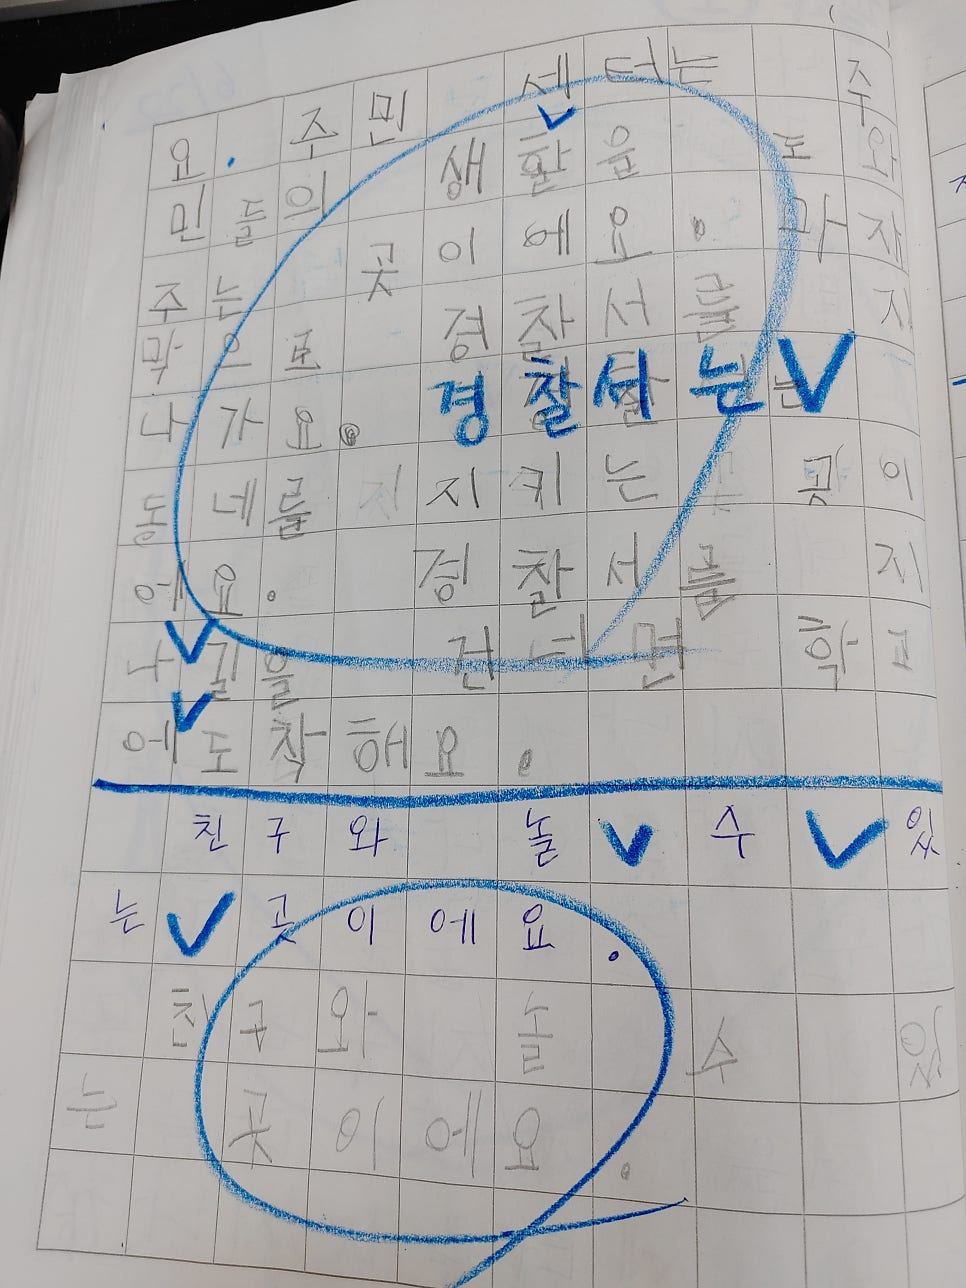 요. 주민 센터는 주
민들의 생활을 도와
주는 곳이에요. 마지
막으로 경찰서를 지
나가요. 경찰서는
동네를 지키는 곳이
에요. 경찰서를 지
나 길을 건너면 학교
에 도착해요.
친구와 놀 수 있
는 곳이에요.
친구와 놀 수 있
는 곳이에요.